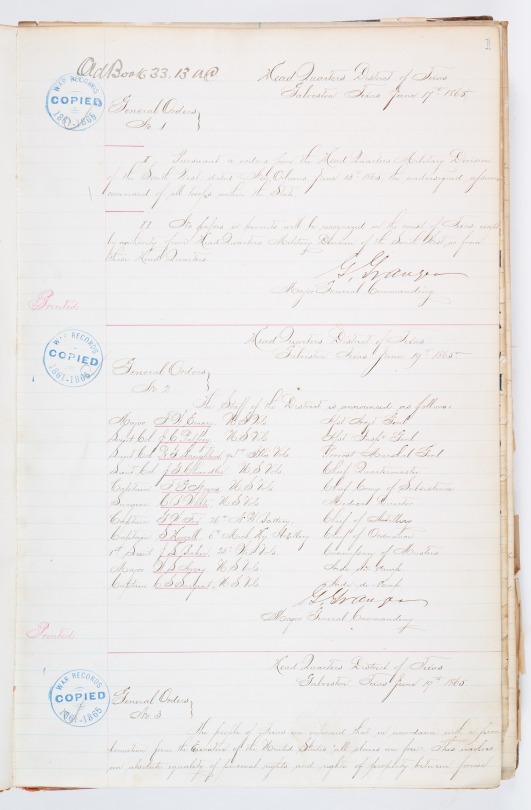 1
Old Book 33. 13 AC
Head Quarters District of Texas
Galveston Texas June 17th 1865
WAR RECORDS
COPIED
1861-1865
General Orders
No. 1
I Pursuant to orders from the Head Quarters Military Division
of the South West dated New Orleans June 13th 1865 the undersigned assumes
command of all troops within the State
II No papers or permits will be recognized on the coast of Texas
by authority from Head Quarters Military Division of the South West or from
these Head Quarters.
G. Granger
Major General Commanding
Printed
Head Quarters District of Texas
Galveston Texas June 19th 1865
WAR RECORDS
COPIED
1861-1865
General Orders
No. 2
The Staff of the District is announced as follows:
Major F W Emery U S Vols
Lieut Col U S Vols
Lieut Col Vols Provost Marshal Genl
Lieut Col J G Chandler U S Vols Chief Quartermaster
Captain U S Vols Chief Comy of Subsistence
Surgeon U S Vols Medical Director
Captain Battery Chief of Artillery
Captain Chief of Ordnance
1st Lieut J S Baker Vols Commissary of Musters
Major U S Vols Aide de Camp
Captain U S Vols Aide-de-Camp
G. Granger
Major General Commanding
Printed
Head Quarters District of Texas
Galveston Texas June 19th 1865
WAR RECORDS
COPIED
1861-1865
General Orders
No. 3
The people of Texas are informed that in accordance with a Procla-
mation from the Executive of the United States "all slaves are free." This involves
an absolute equality of personal rights and rights of property between former